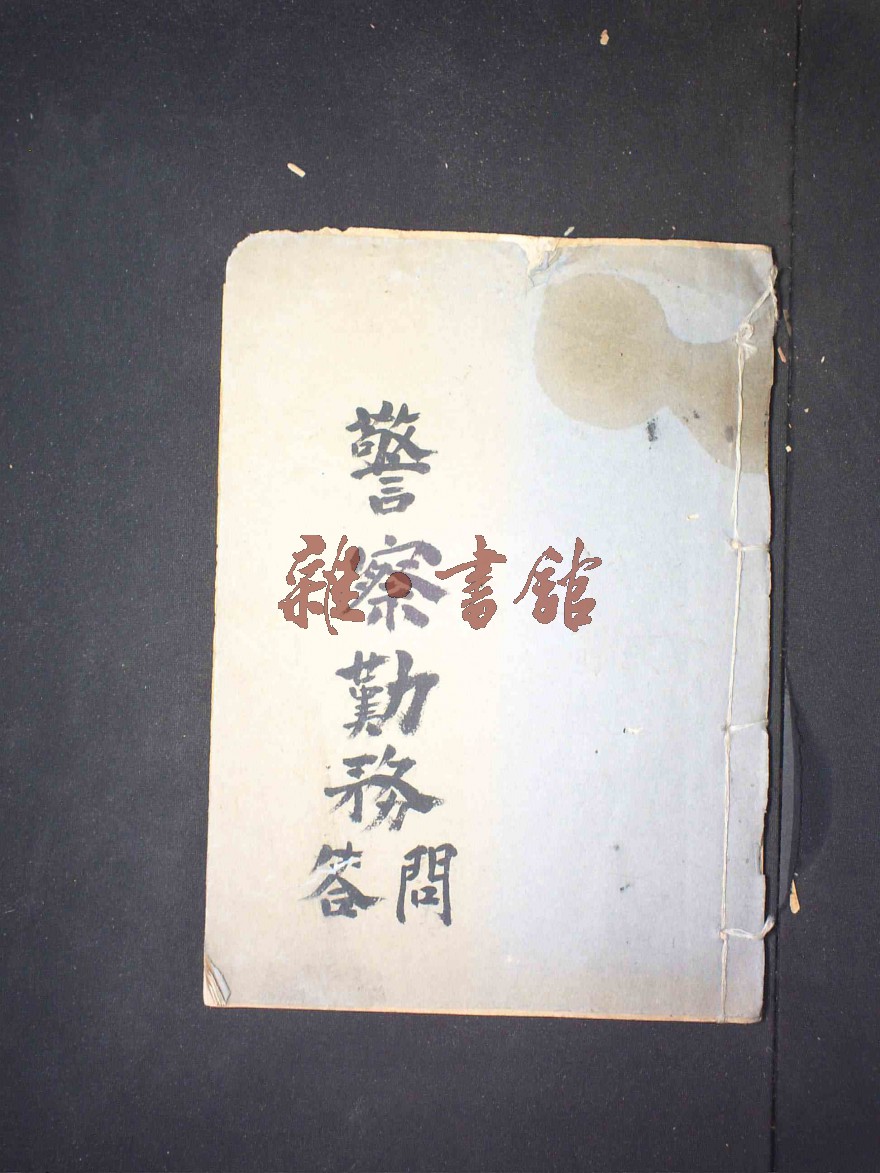 警察勤務
問答
雜·書館